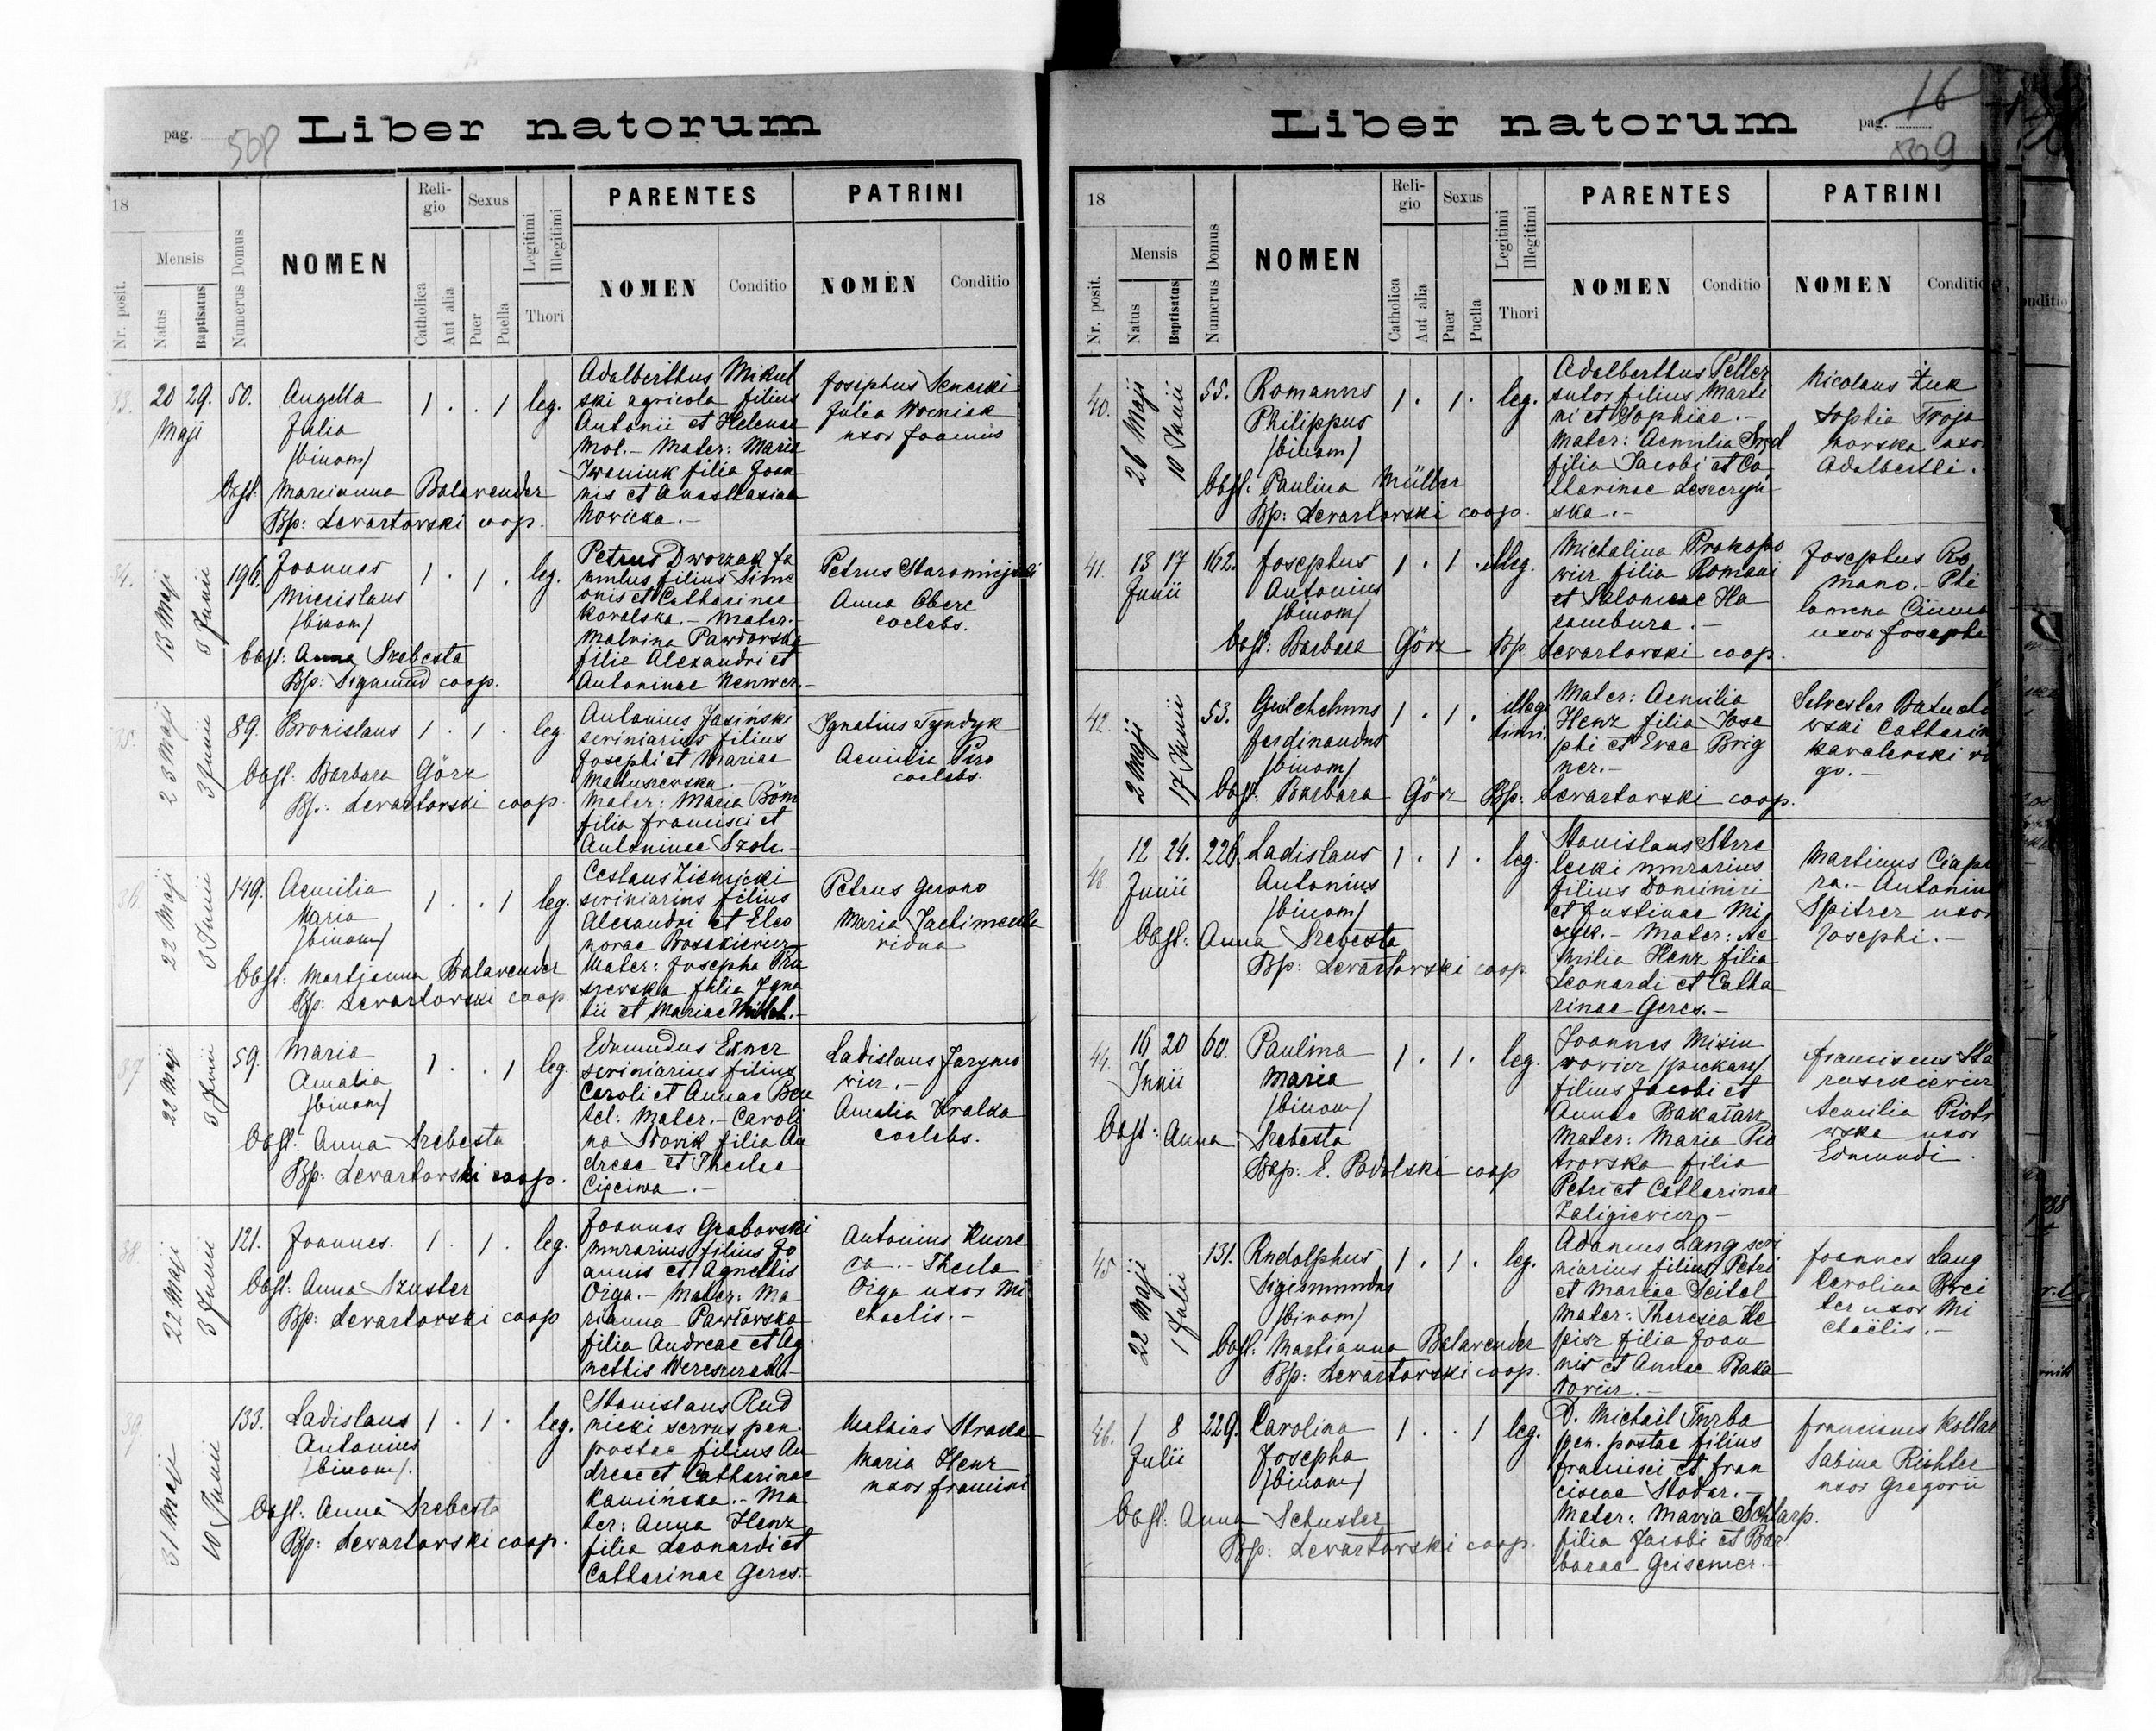 pag. 508 Liber natorum
18
Nr. posit.
Mensis
Natus
Baptisatus
Numerus Domus
NOMEN
Religio
Catholica
Aut alia
Sexus
Puer
Puella
Legitimi
Illegitimi
Thori
PARENTES
NOMEN Conditio
PATRINI
NOMEN Conditio
33.
20 29.
Maji
50.
Angella
Julia
/binom/
Obst. Marcianna Balavender
Bp: Levartovski coop.
1 . . 1 leg.
Adalberthus Mikul
ski agricola filius
Antonii et Helenae
Mol. - Mater: Maria
Iwaniuk filia Joan
nis et Anasthasiae
Novicka. -
Josephus
Julia Wozniak
uxor Joannis
34.
13 Maji
3 Junii
196.
Joannes
Miecislaus
/binom/
Obst: Anna Szebesta
Bp: Sigmund coop.
1 . 1 . leg.
Petrus Dworzak fa
mulus filius Sime
onis et Catharinae
Kovalska. - Mater.
Malvina Pawlovska
filie Alexandri et
Antoninae
Petrus
Anna Oberc
coelebs.
35.
23 Maji
3 Junii
89.
Bronislaus
Obst. Barbara Görz
Bp.: Levartovski coop.
1 . 1 . leg
Antonius Jasiński
scriniarius filius
Josephi et Mariae
Matuszevska.
Mater: Maria Böm
filia Francisci et
Antoninae Szolc. -
Ignatius Tyndyk
Aemilia Piro
coelebs.
36.
22 Maji
3 Junii
149.
Aemilia
Maria
/binom/
Obst. Martianna Balavender
Bp: Levartovski coop.
1 . . 1 leg.
Ceslaus Ziemicki
scriniarius filius
Alexandri et Eleo
norae
Mater: Josepha Pru
szevska filia Igna
tii et Mariae
Petrus Gerono
Maria
vidua
37
22 Maji
3 Junii
59.
Maria
Amalia
/binom/
Obst. Anna Szebesta
Bp: Levartovski coop.
1 . . 1 leg.
Edmundus Exner
scriniarius filius
Caroli et Annae Beu
tel: Mater. - Caroli
na Stovik filia An
dreae et Theclae
Cięciwa. -
Ladislaus Jarymo
wicz. -
Amalia Kralka
coelebs.
38.
22 Maji
3 Junii
121.
Joannes.
Obst. Anna Szuster
Bp: Levartovski coop
1 . 1 . leg.
Joannes Grabovski
murarius filius Jo
annis et Agnethis
Orga. - Mater: Ma
rianna Pawlovska
filia Andreae et Ag
nethis
Antonius
Thecla
Oiga uxor Mi
chaelis. -
39.
31 Maji
10 Junii
133.
Ladislaus
Antonius
/binom/.
Obst. Anna Szebesta
Bp: Levartovski coop.
1 . 1 . leg.
Stanislaus Rud
nicki servus pen.
postae filius An
dreae et Catharinae
Kamińska. - Ma
ter: Anna Henz
filia Leonardi et
Catharinae Geres. -
Mathias Straka
Maria Henz
uxor Francisci
Liber natorum pag. 16
509
18
Nr. posit.
Mensis
Natus
Baptisatus
Numerus Domus
NOMEN
Religio
Catholica
Aut alia
Sexus
Puer
Puella
Legitimi
Illegitimi
Thori
PARENTES
NOMEN Conditio
PATRINI
NOMEN Conditio
40.
26 Maji
10 Junii
55.
Romanus
Philippus
/binom/
Obst: Paulina Müller
Bp: Levartovski coop.
1 . 1 . leg.
Adalberthus Peller
sutor filius Marti
ni et Sophiae. -
Mater: Aemilia
filia Jacobi et Ca
tharinae Leszczyń
ska. -
Nicolaus Żuk
Sophia Troja
novska uxor
Adalberthi.
41.
13 17
Junii
162.
Josephus
Antonius
/binom/
Obst: Barbara Görz Bp. Levartovski coop.
1 . 1 . illeg.
Michalina Prokopo
wicz filia Romani
et Salomeae Ha
Josephus Ro
mano. - Phi
lomena
uxor Josephi
42.
2 Maji
17 Junii
53.
Guilchelmus
Ferdinandus
/binom/
Obst. Barbara Görz Bp: Levartovski coop.
1 . 1 . illegi
timi.
Mater: Aemilia
Henz filia Jose
phi et Evae Brig
ner. -
Selvester
wski Catharina
kavalerski vir
go. -
43.
12 24.
Junii
226.
Ladislaus
Antonius
/binom/
Obst: Anna Szebesta
Bp: Levartovski coop
1 . 1 . leg.
Stanislaus Strze
lecki murarius
filius Dominici
et Justinae
Mater: Ae
milia Henz filia
Leonardi et Catha
rinae Geres. -
Martinus
Spitzer uxor
Josephi. -
44.
16 20
Junii
60.
Paulina
Maria
/binom/
Obst: Anna Szebesta
Bap: E. Podolski coop
1 . 1 . leg.
Joannes Misiu
rovicz /piekarz/
filius Jacobi et
Annae Bakalarz
Mater: Maria Pio
trovska filia
Petri et Catharinae
Zaligiewicz -
Franciscus Sta
Aemilia Piotro
wska uxor
Edmundi.
45
22 Maji
1 Julii
131.
Rudolphus
Sigismundus
/binom/
Obst: Martianna Balavender
Bp: Levartovski coop.
1 . 1 . leg.
Adamus Lang scri
niarius filius Petri
et Mariae Seitel
Mater: Theresia He
pisz filia Joan
nis et Annae Baka
novicz. -
Joannes Lang
Carolina Brei
ter uxor Mi
chaëlis. -
46.
1 8
Julii
229.
Carolina
Josepha
/binom/
Obst: Anna Schuster
Bp: Levartovski coop.
1 . . 1 leg.
D. Michaël Turba
pen. postae filius
Francisci et Fran
ciscae Stodar. -
Mater: Maria Schlarp.
filia Jacobi et Bar
barae Geisemer. -
Franciscus Kollar
Sabina Richter
uxor Gregorii